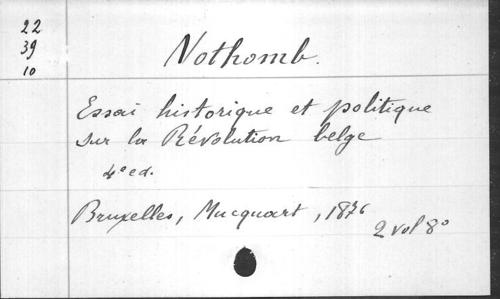 22
39
10
Nothomb.
Essai historique et politique
sur la Révolution belge
4e ed.
Bruxelles, Mucquart, 1876
2 vol 8o